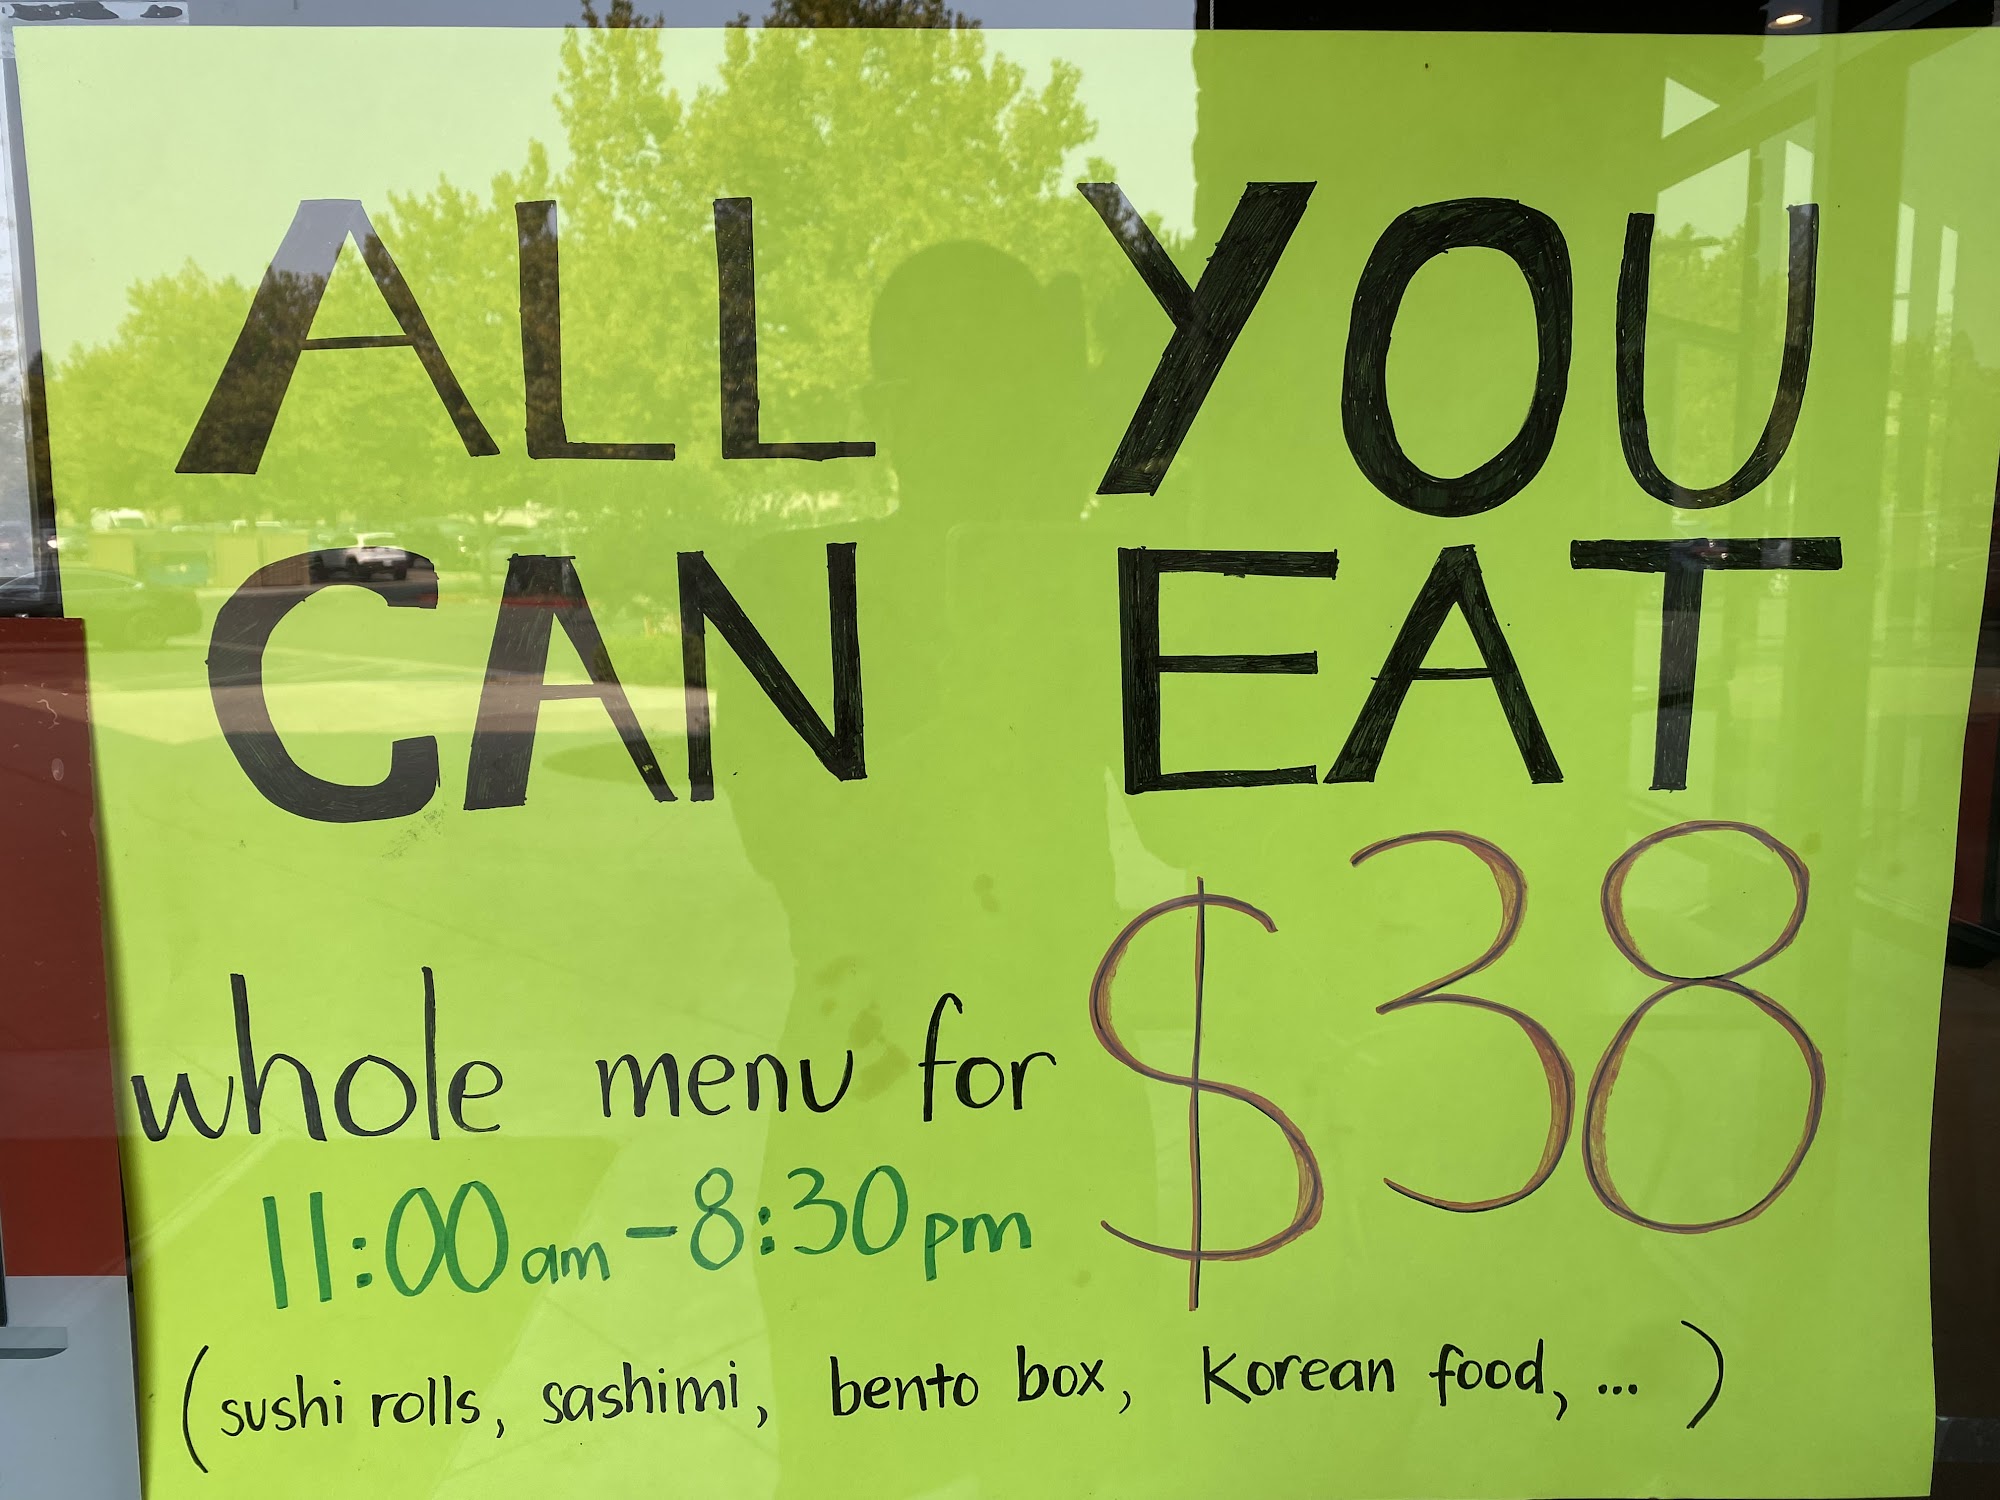 ALL YOU
CAN EAT
whole menu for $38
11:00am - 8:30pm
(sushi rolls, sashimi, bento box, Korean food, ... )